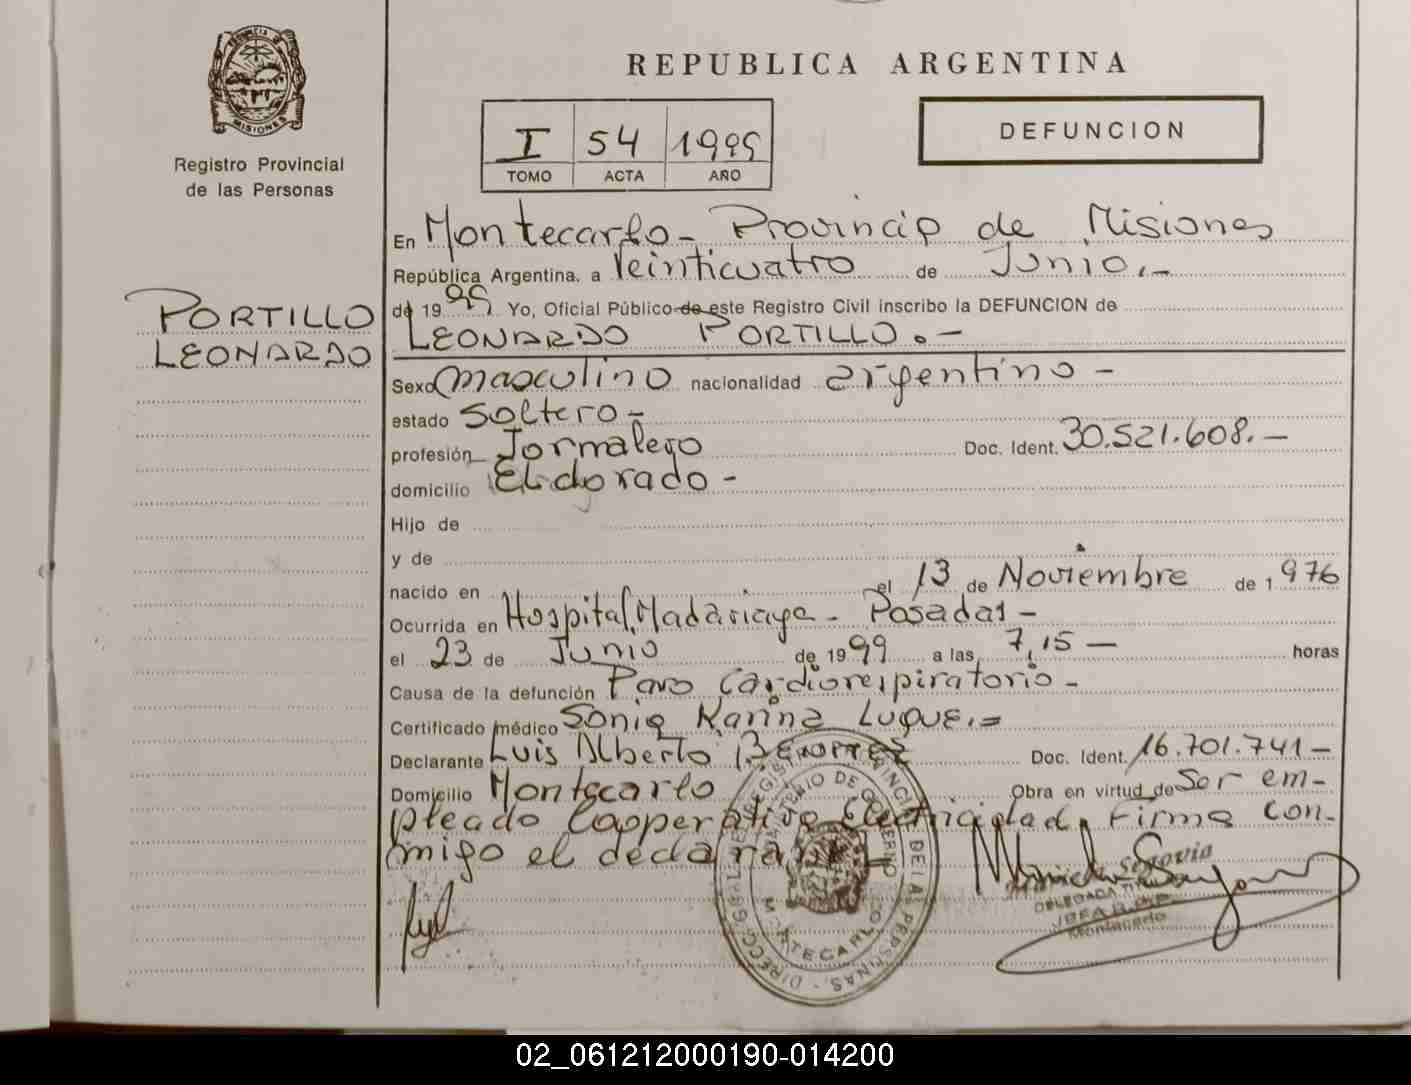 REPUBLICA ARGENTINA
PROVINCIA DE
MISIONES
Registro Provincial
de las Personas
I 54 1999
TOMO ACTA AÑO
DEFUNCION
En Montecarlo - Provincia de Misiones
República Argentina. a Veinticuatro de Junio.-
de 19 99 Yo, Oficial Público de este Registro Civil inscribo la DEFUNCION de
PORTILLO
LEONARDO
LEONARDO PORTILLO.-
Sexo masculino nacionalidad argentino -
estado Soltero -
profesión Jornalero Doc. Ident. 30.521.608.-
domicilio Eldorado -
Hijo de
y de
nacido en el 13 de Noviembre de 1976
Ocurrida en Hospital Madariaga - Posadas -
el 23 de Junio de 1999 a las 7,15 - horas
Causa de la defunción Paro Cardiorespiratorio -
Certificado médico Sonia Karina Luque.=
Declarante Luis Alberto Doc. Ident. 16.701.741 -
Domicilio Montecarlo Obra en virtud de Ser em-
pleado Cooperativa Electricidad. Firma con-
migo el declarante
MINISTERIO DE GOBIERNO
MONTECARLO
DE LAS PERSONAS
Segovia
DELEGADA
Montecarlo
02_061212000190-014200